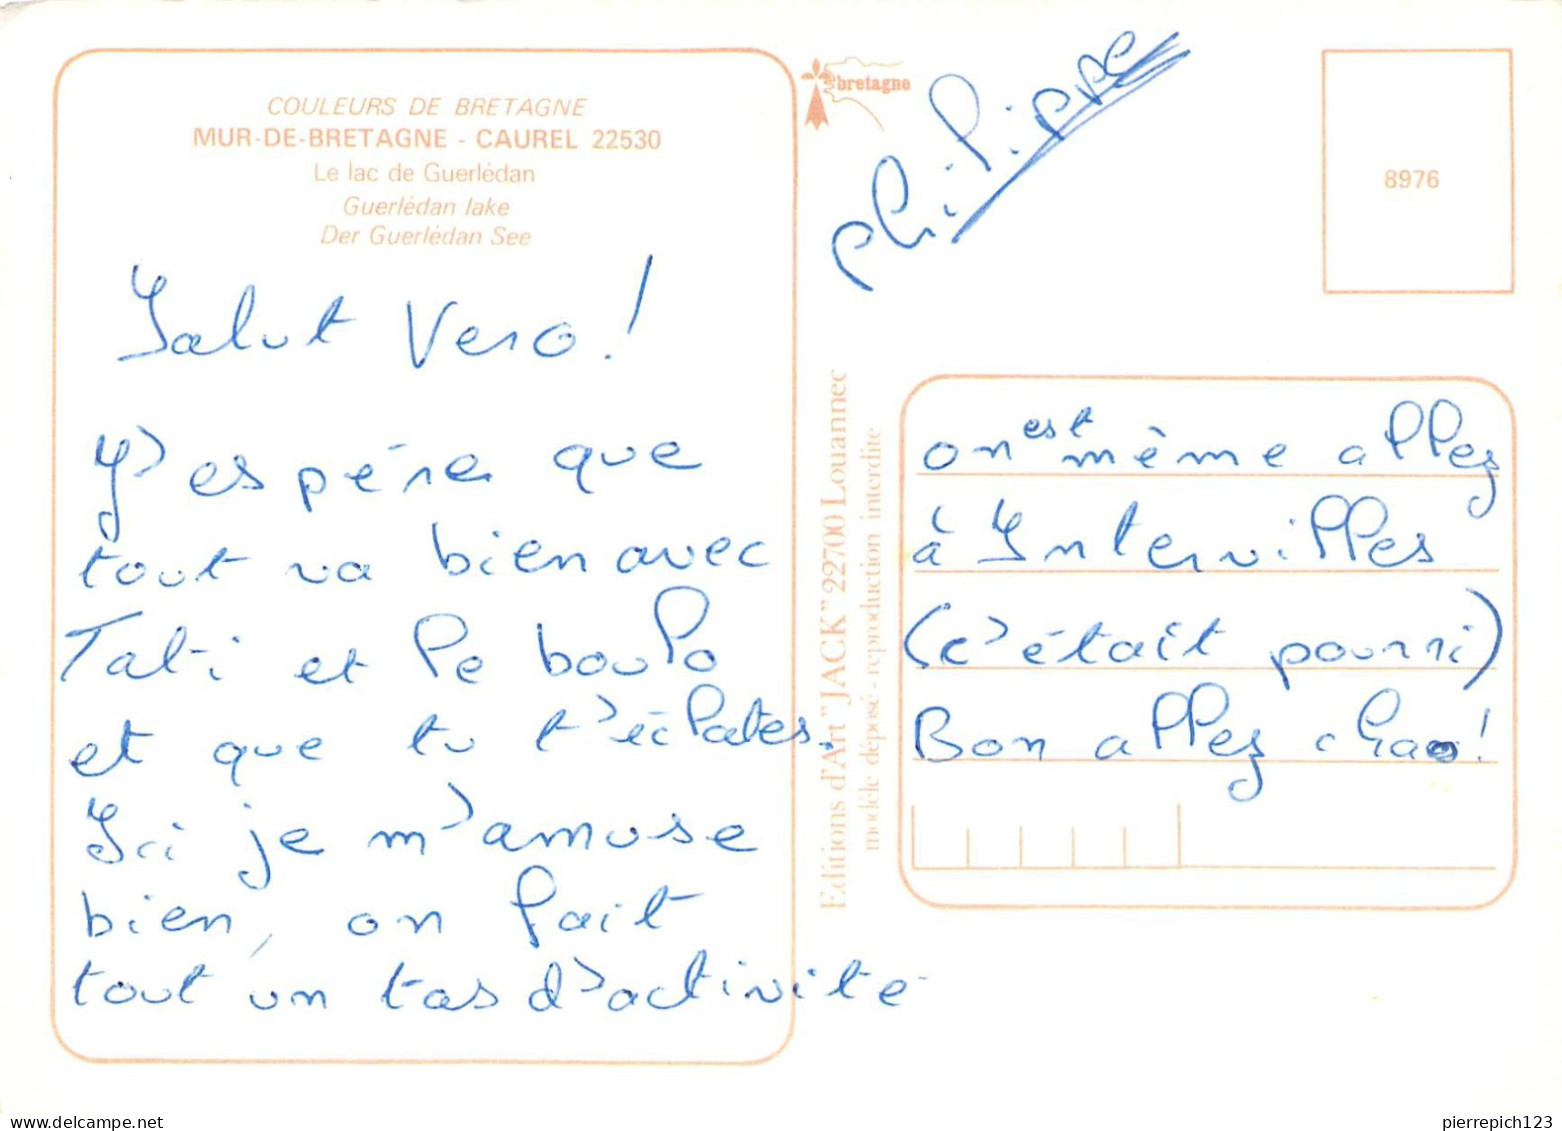 COULEURS DE BRETAGNE
MUR-DE-BRETAGNE - CAUREL 22530
Le lac de Guerlédan
Guerlédan lake
Der Guerlédan See
Salut Vero !
J'espére que
tout va bien avec
Tati et le boulo
et que tu t'éclates.
Ici je m'amuse
bien, on fait
tout un tas d'activite
bretagne
philippe
8976
Editions d'Art "JACK" 22700 Louannec
modèle déposé - reproduction interdite
on est même allez
à Intervilles
(c'était pourri)
Bon allez chao !
pierrepich123